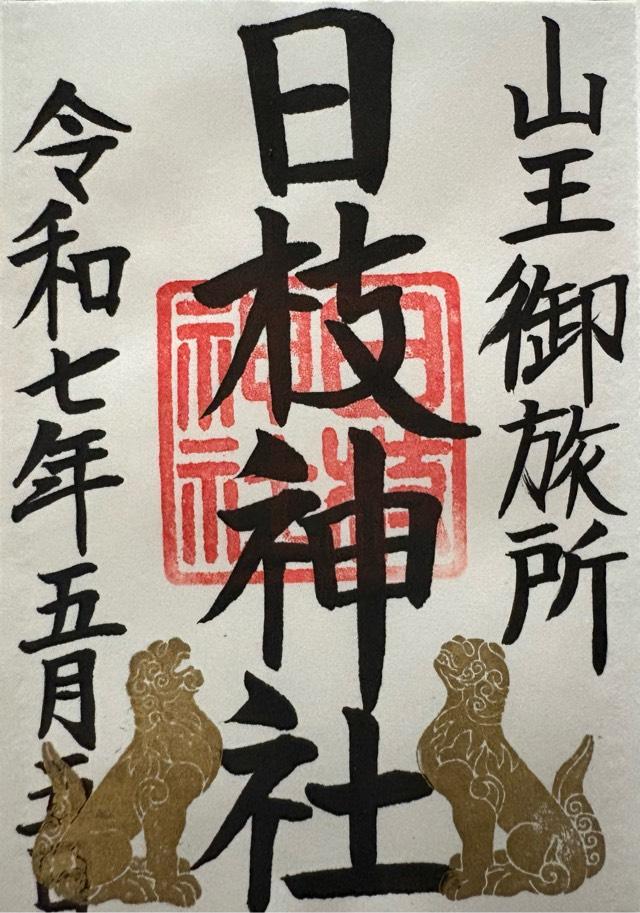 山王御旅所
日枝神社
日枝神社
令和七年五月